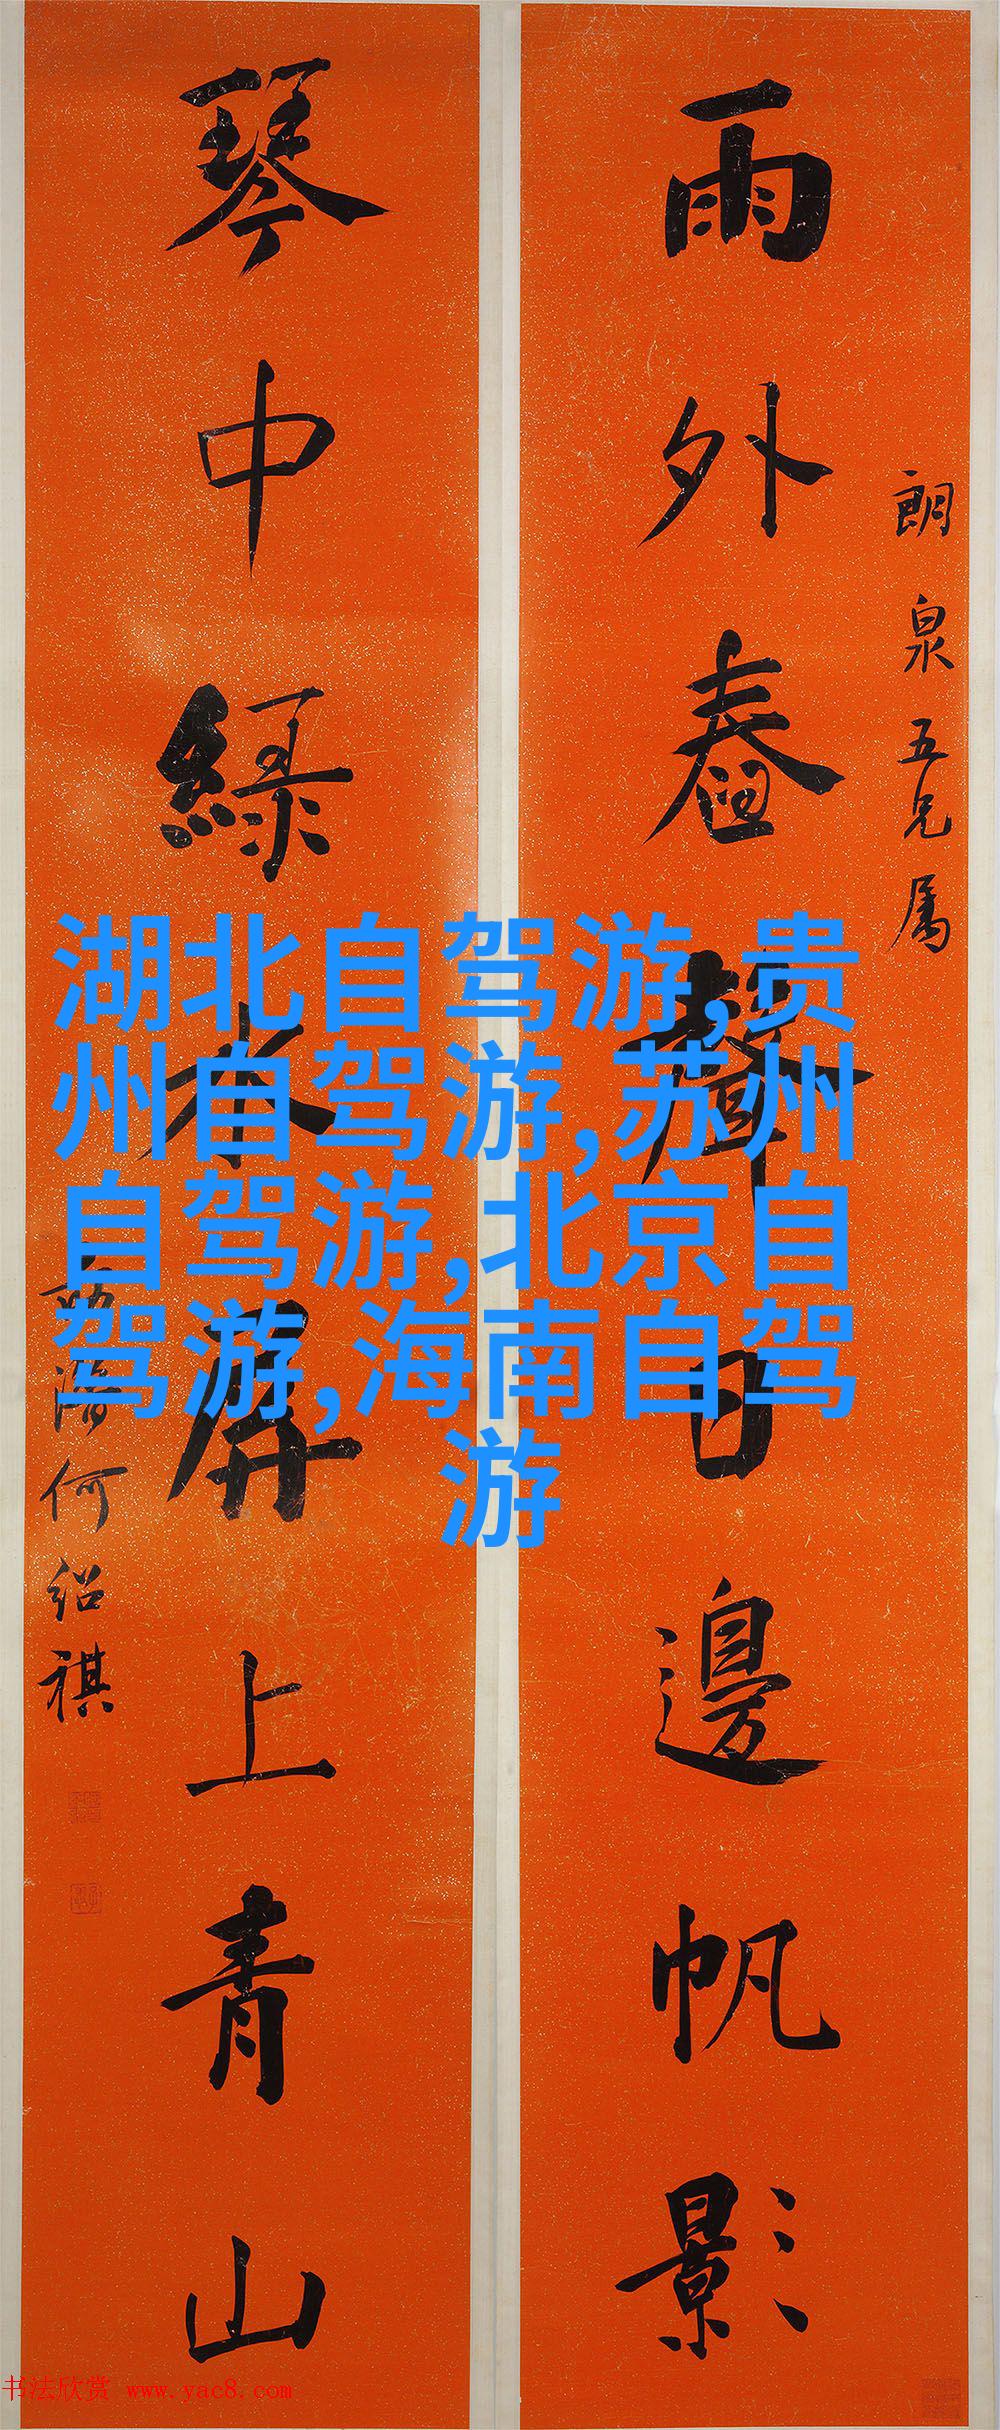 雨外舂聲日邊帆影
朗泉五兄屬
琴中綠水屏上青山
何紹祺
湖北自驾游,贵
州自驾游,苏州
自驾游,北京自
驾游,海南自驾
游
书法欣赏 www.yac8.com